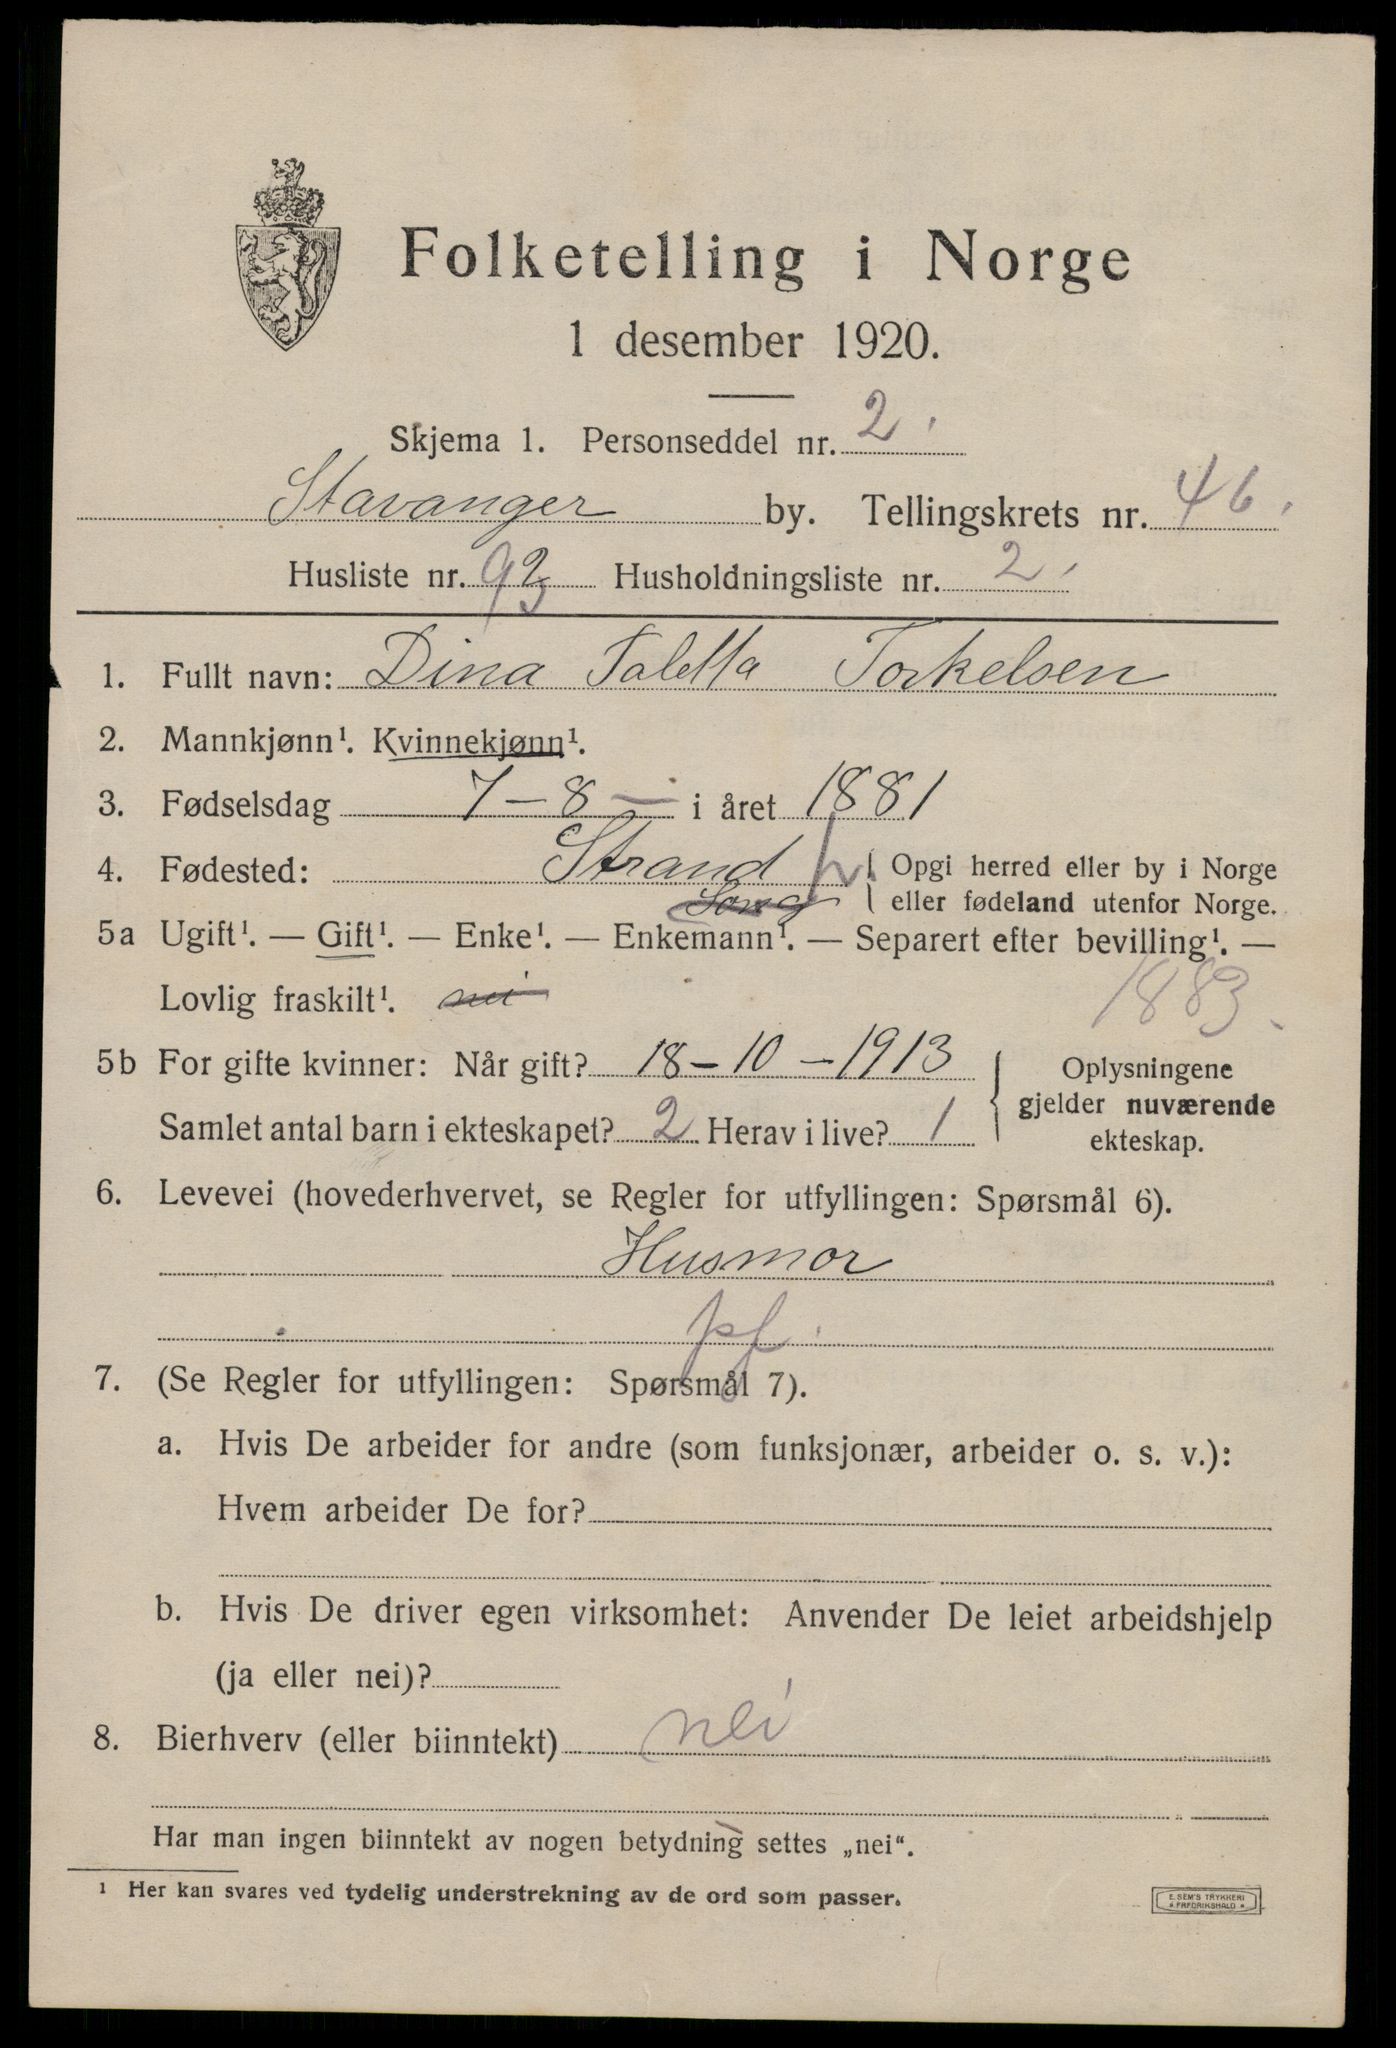 Folketelling i Norge
1 desember 1920.
Skjema 1. Personseddel nr. 2.
Stavanger by. Tellingskrets nr. 46.
Husliste nr. 92 Husholdningsliste nr. 2.
1. Fullt navn: Dina Taletta Torkelsen
2. Mannkjønn¹. Kvinnekjønn¹.
3. Fødselsdag 7 – 8 – i året 1881
4. Fødested: Strand h { Opgi herred eller by i Norge
eller fødeland utenfor Norge.
5a Ugift¹. — Gift¹. — Enke¹. — Enkemann¹. — Separert efter bevilling¹. —
Lovlig fraskilt¹. nei 1883.
5b For gifte kvinner: Når gift? 18 – 10 – 1913 { Oplysningene
gjelder nuværende
ekteskap.
Samlet antal barn i ekteskapet? 2 Herav i live? 1
6. Levevei (hovederhvervet, se Regler for utfyllingen: Spørsmål 6).
Husmor
pf.
7. (Se Regler for utfyllingen: Spørsmål 7).
a. Hvis De arbeider for andre (som funksjonær, arbeider o. s. v.):
Hvem arbeider De for?
b. Hvis De driver egen virksomhet: Anvender De leiet arbeidshjelp
(ja eller nei)?
8. Bierhverv (eller biinntekt) nei
Har man ingen biinntekt av nogen betydning settes „nei“.
¹ Her kan svares ved tydelig understrekning av de ord som passer.
E. SEM'S TRYKKERI
FREDRIKSHALD